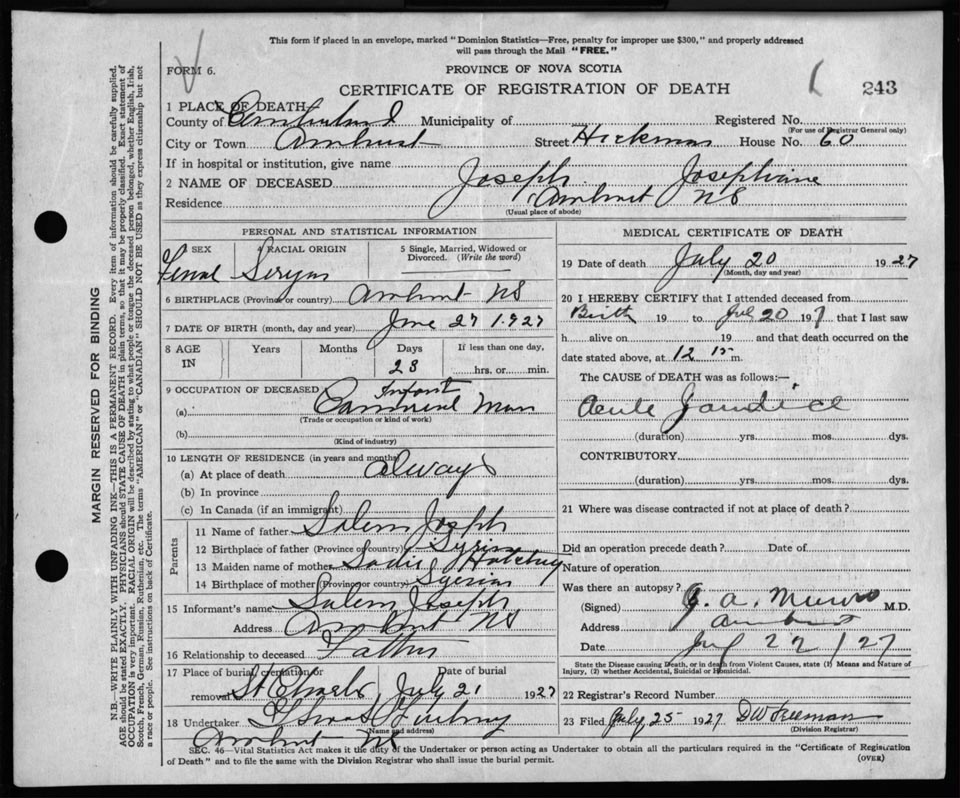 This form if placed in an envelope, marked "Dominion Statistics—Free, penalty for improper use $300," and properly addressed
will pass through the Mail "FREE."
FORM 6.
PROVINCE OF NOVA SCOTIA
CERTIFICATE OF REGISTRATION OF DEATH
243
1 PLACE OF DEATH
County of Cumberland Municipality of Registered No.
(For use of Registrar General only)
City or Town Amherst Street Hickman House No. 60
If in hospital or institution, give name
2 NAME OF DECEASED Joseph Josephine
Residence Amherst NS
(Usual place of abode)
PERSONAL AND STATISTICAL INFORMATION
3 SEX 4 RACIAL ORIGIN 5 Single, Married, Widowed or Divorced. (Write the word)
6 BIRTHPLACE (Province or country) Amherst NS
7 DATE OF BIRTH (month, day and year) June 27 1927
8 AGE IN Years Months Days If less than one day,
23 hrs. or min.
9 OCCUPATION OF DECEASED Infant
(a)
(Trade or occupation or kind of work)
(b)
(Kind of industry)
10 LENGTH OF RESIDENCE (in years and months)
(a) At place of death always
(b) In province
(c) In Canada (if an immigrant)
Parents
11 Name of father Salem Joseph
12 Birthplace of father (Province or country) Syria
13 Maiden name of mother Sadie
14 Birthplace of mother (Province or country)
15 Informant's name Salem Joseph
Address Amherst NS
16 Relationship to deceased Father
17 Place of burial, cremation or removal St Charles Date of burial July 21 1927
18 Undertaker
(Name and address)
Amherst NS
MEDICAL CERTIFICATE OF DEATH
19 Date of death July 20 1927
(Month, day and year)
20 I HEREBY CERTIFY that I attended deceased from
Birth 19 to Jul 20 197 that I last saw
h alive on 19 and that death occurred on the
date stated above, at 12 15 m.
The CAUSE OF DEATH was as follows:—
Acute Jaundice
(duration) yrs. mos. dys.
CONTRIBUTORY.
(duration) yrs. mos. dys.
21 Where was disease contracted if not at place of death?
Did an operation precede death? Date of
Nature of operation
Was there an autopsy?
(Signed) J. A. Munro M.D.
Address Amherst
Date July 22/27
State the Disease causing Death, or in death from Violent Causes, state (1) Means and Nature of
Injury, (2) whether Accidental, Suicidal or Homicidal.
22 Registrar's Record Number
23 Filed July 25 1927 D W Freeman
(Division Registrar)
SEC. 46—Vital Statistics Act makes it the duty of the Undertaker or person acting as Undertaker to obtain all the particulars required in the "Certificate of Registration
of Death" and to file the same with the Division Registrar who shall issue the burial permit.
(OVER)
MARGIN RESERVED FOR BINDING
N.B.—WRITE PLAINLY WITH UNFADING INK—THIS IS A PERMANENT RECORD. Every item of information should be carefully supplied.
AGE should be stated EXACTLY. PHYSICIANS should STATE CAUSE OF DEATH in plain terms, so that it may be properly classified. Exact statement of
OCCUPATION is very important. RACIAL ORIGIN will be described by stating to what people or tongue the deceased person belonged, whether English, Irish,
Scotch, French, German, Russian, Ruthenian, etc. The terms "AMERICAN" or "CANADIAN" SHOULD NOT BE USED as they express citizenship but not
a race or people. See instructions on back of Certificate.